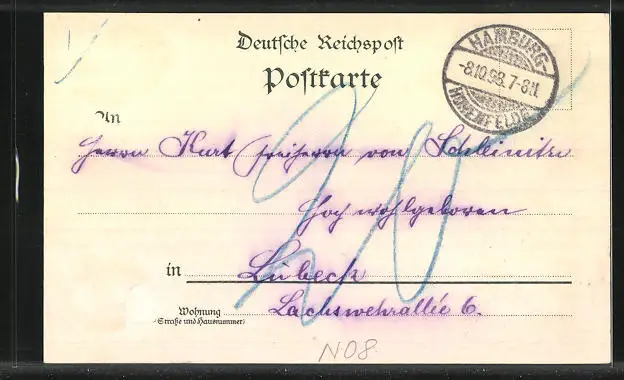 Deutsche Reichspost
Postkarte
HAMBURG-
-8.10.98.7-8N.
HOHENFELDE
An
Herrn Kurt Freiherrn von Schleinitz
Hochwohlgeboren
in Lübeck
Wohnung
(Straße und Hausnummer)
Lachswehrallée 6.
20
NO8